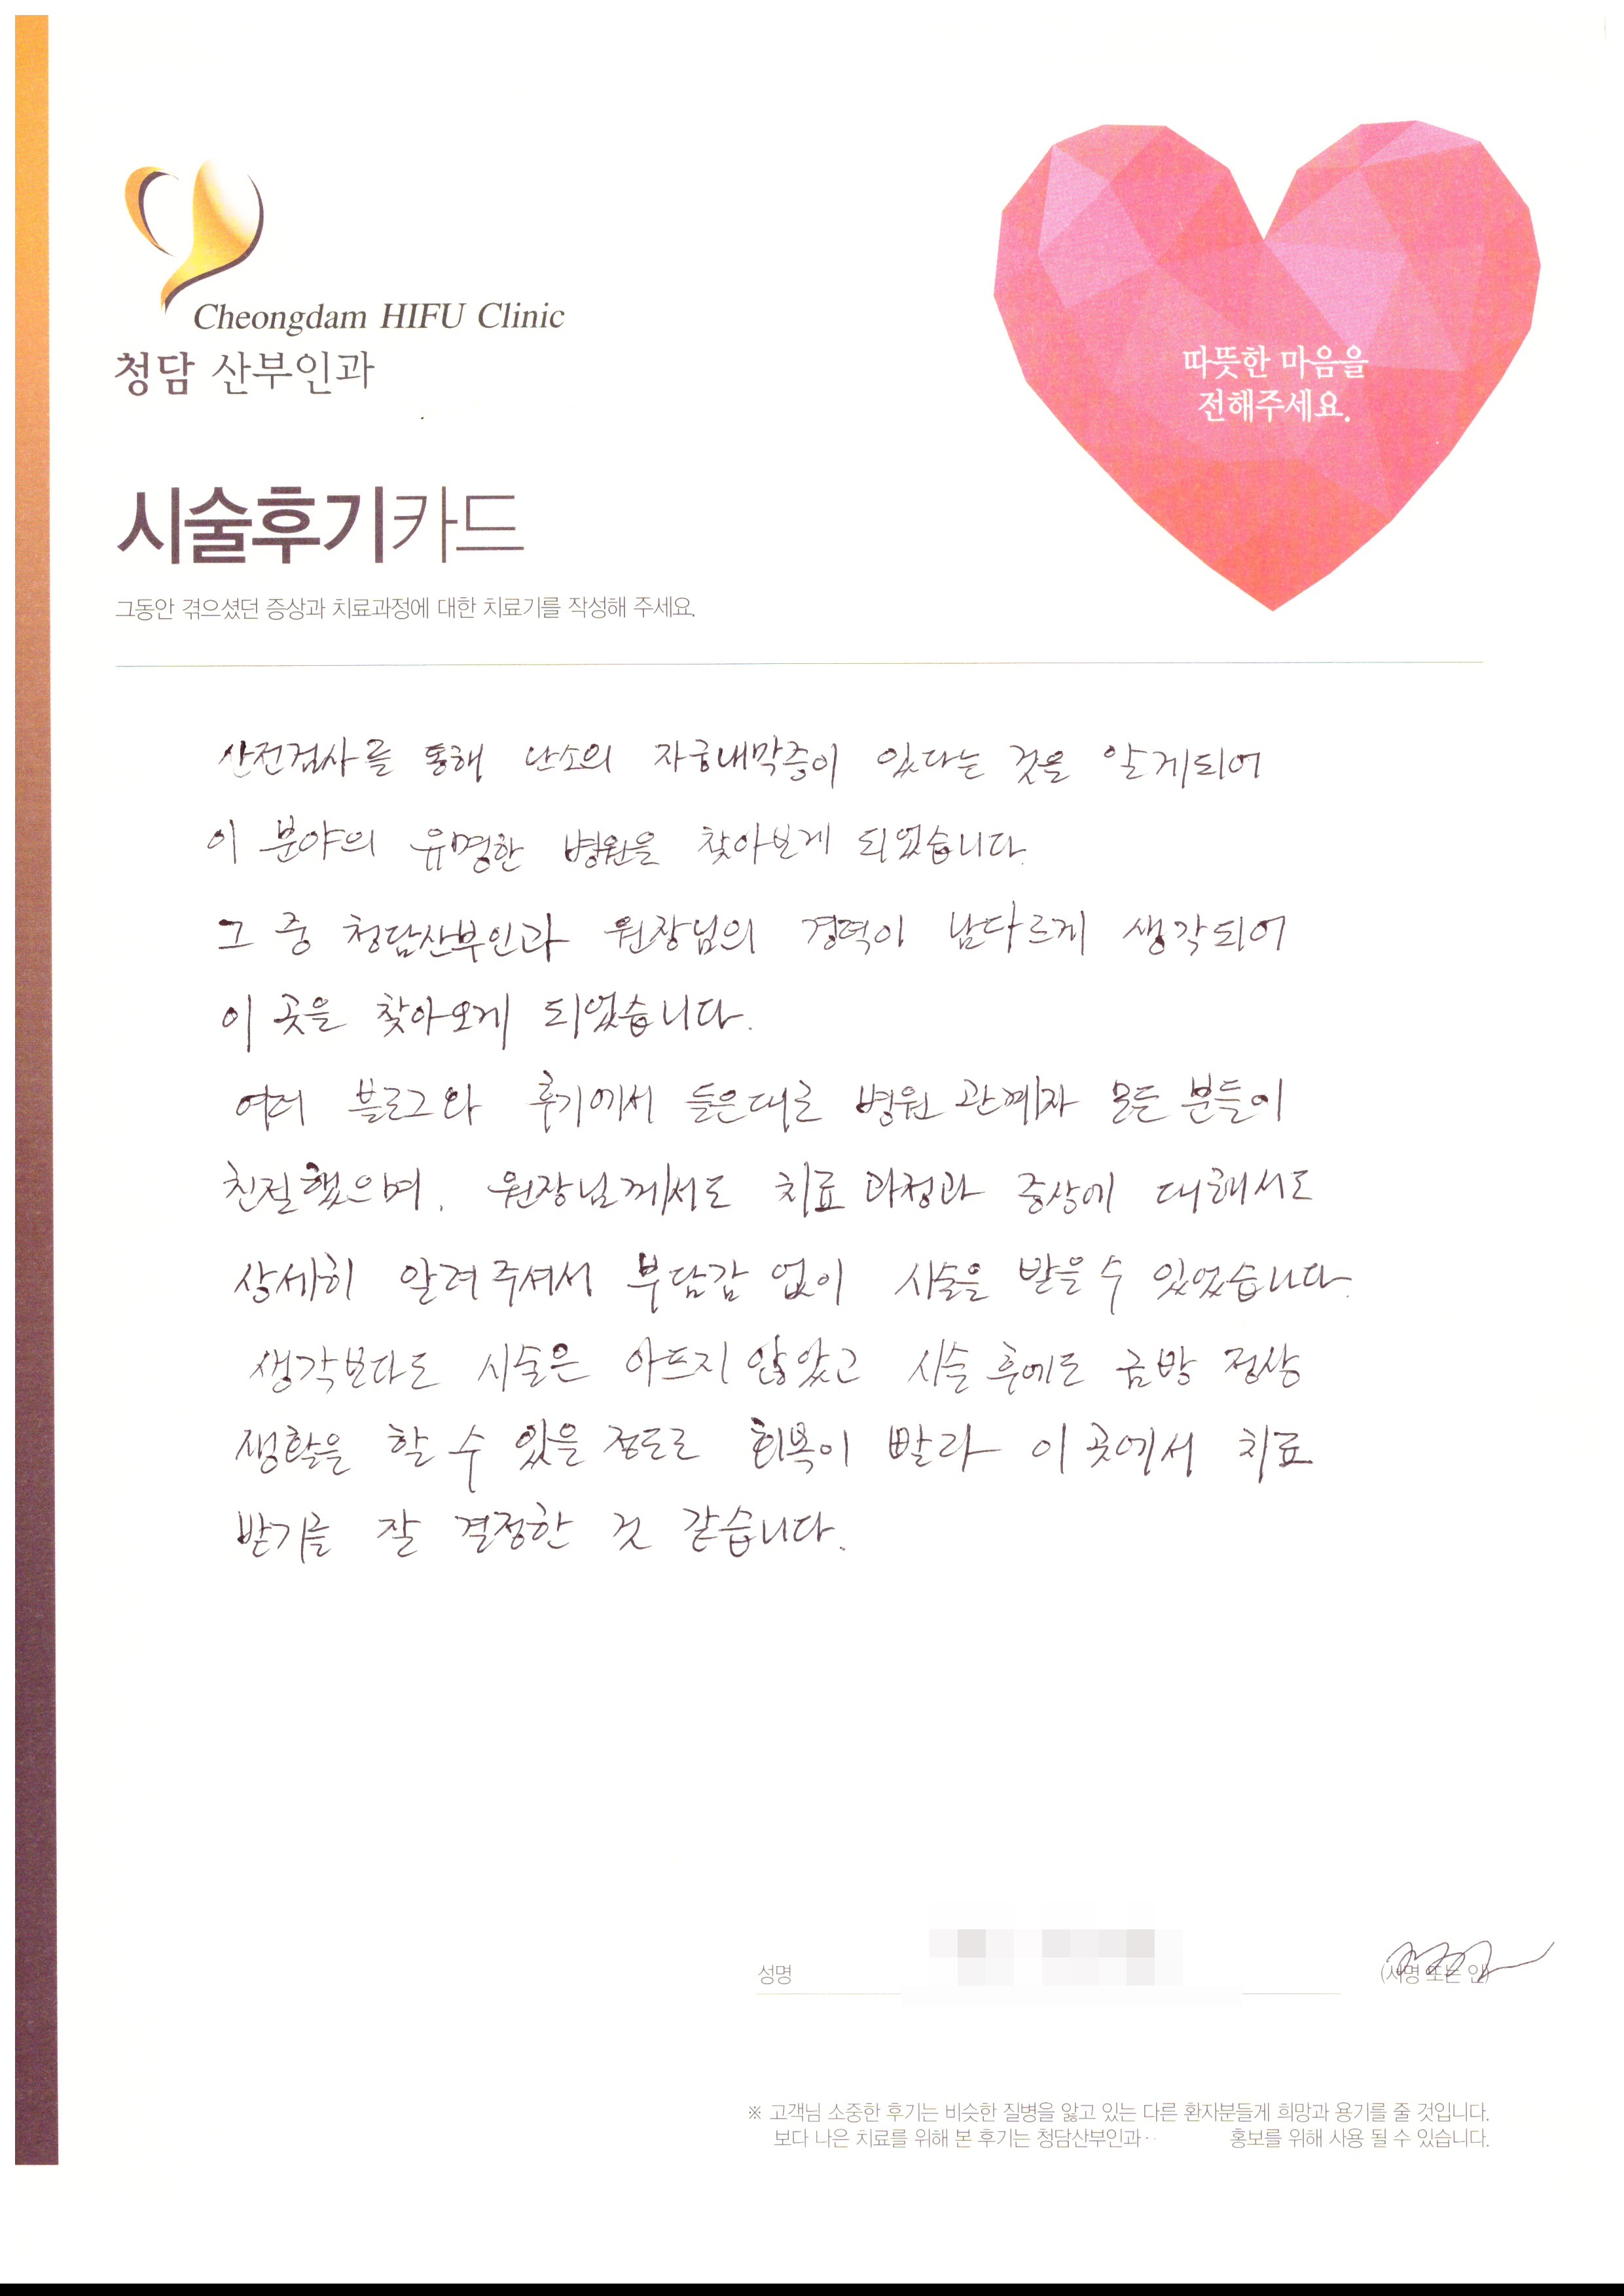 Cheongdam HIFU Clinic
청담 산부인과
따뜻한 마음을
전해주세요.
시술후기카드
그동안 겪으셨던 증상과 치료과정에 대한 치료기를 작성해 주세요.
산전검사를 통해 난소의 자궁내막증이 있다는 것을 알게되어
이 분야의 유명한 병원을 찾아보게 되었습니다.
그 중 청담산부인과 원장님의 경력이 남다르게 생각되어
이 곳을 찾아오게 되었습니다.
여러 블로그와 후기에서 들은대로 병원 관계자 모든 분들이
친절했으며, 원장님께서도 치료 과정과 증상에 대해서도
상세히 알려주셔서 부담감 없이 시술을 받을 수 있었습니다.
생각보다도 시술은 아프지 않았고 시술 후에도 금방 정상
생활을 할 수 있을 정도로 회복이 빨라 이 곳에서 치료
받기를 잘 결정한 것 같습니다.
성명
(서명 또는 인)
※ 고객님 소중한 후기는 비슷한 질병을 앓고 있는 다른 환자분들게 희망과 용기를 줄 것입니다.
보다 나은 치료를 위해 본 후기는 청담산부인과 홍보를 위해 사용 될 수 있습니다.